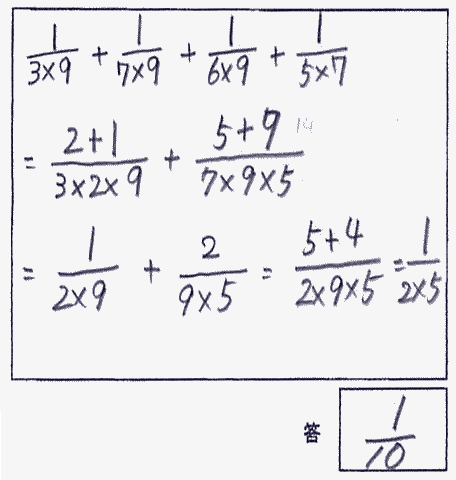 1/3×9 + 1/7×9 + 1/6×9 + 1/5×7
= 2+1/3×2×9 + 5+9/7×9×5 14
= 1/2×9 + 2/9×5 = 5+4/2×9×5 = 1/2×5
答 1/10